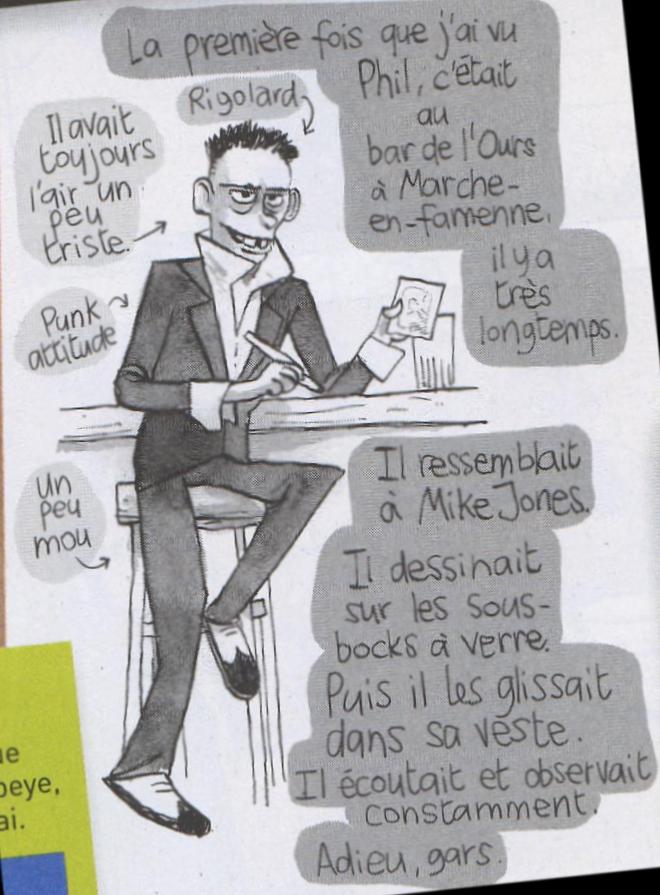 La première fois que j'ai vu
Phil, c'était
au
bar de l'Ours
à Marche-
en-famenne,
il y a
très
longtemps.
Rigolard
Il avait
toujours
l'air un
peu
triste.
Punk
attitude
un
peu
mou
Il ressemblait
à Mike Jones.
Il dessinait
sur les sous-
bocks à verre.
Puis il les glissait
dans sa veste.
Il écoutait et observait
constamment.
Adieu, gars.
ai.